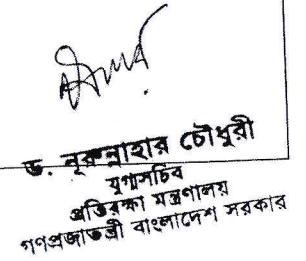 ড. নূরুন্নাহার চৌধুরী
যুগ্মসচিব
প্রতিরক্ষা মন্ত্রণালয়
গণপ্রজাতন্ত্রী বাংলাদেশ সরকার